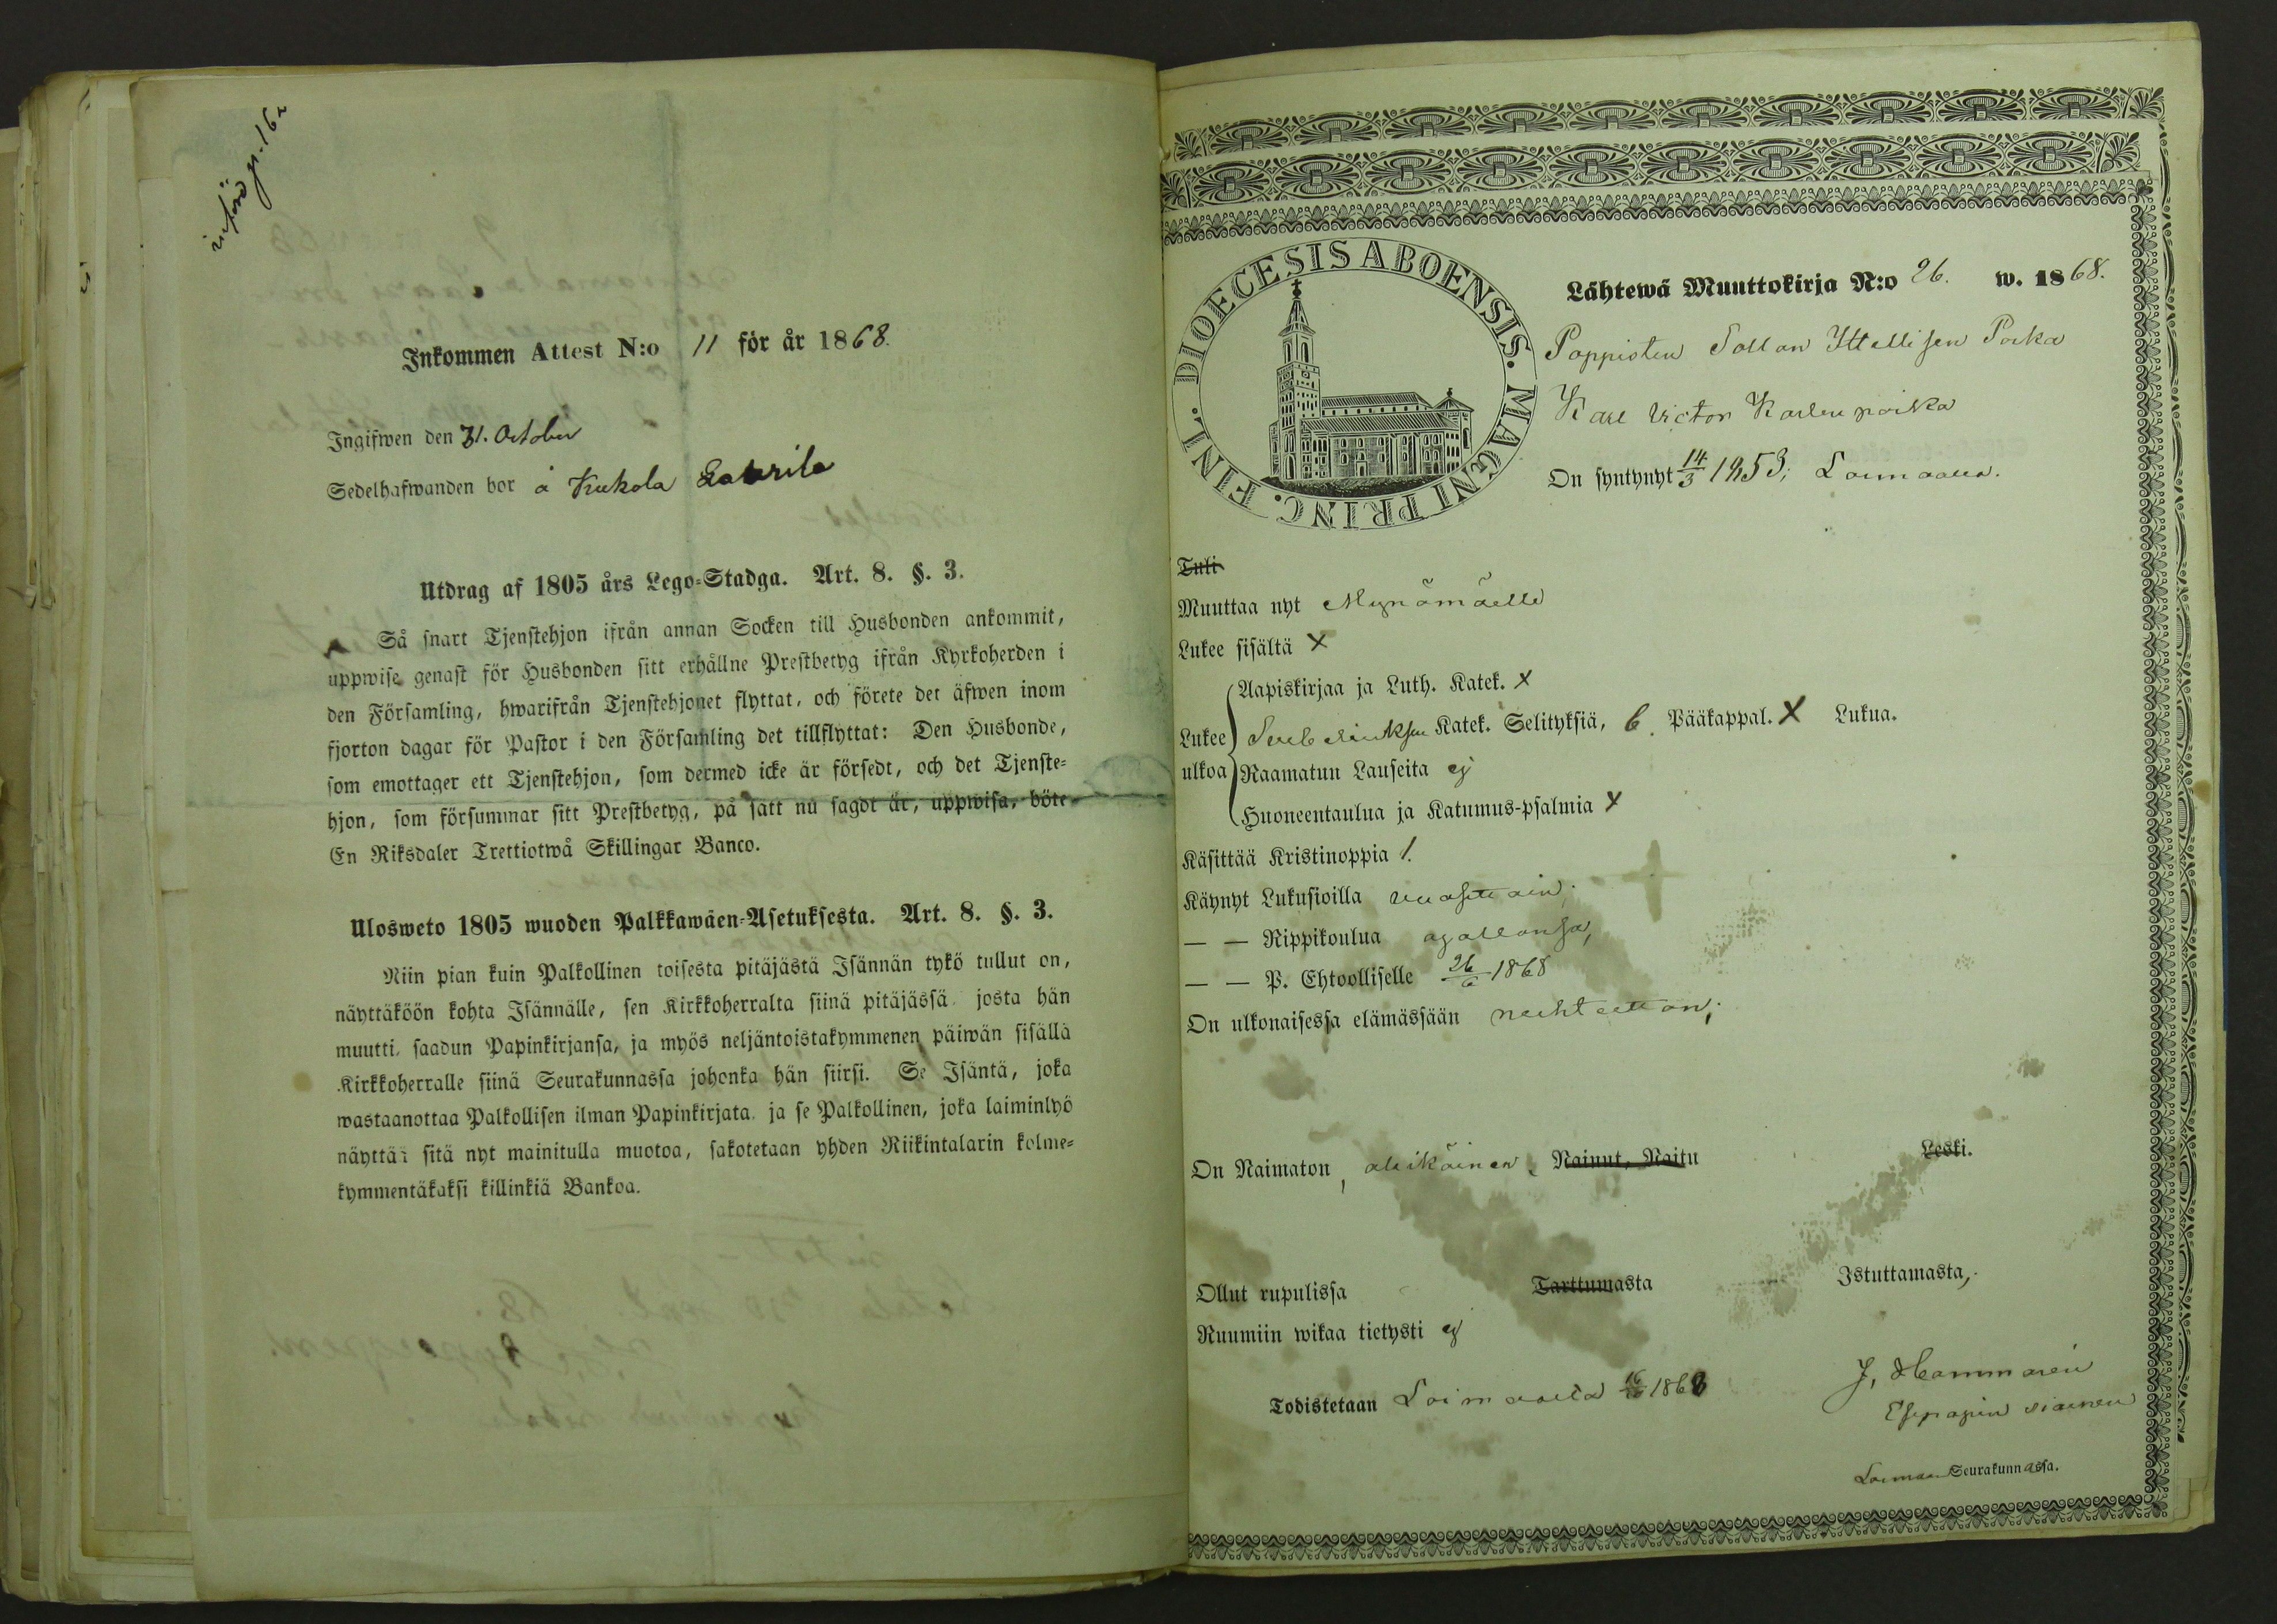 införd p. 162
Inkommen Attest N:o 11 för år 1868.
Ingifwen den 31. October
Sedelhafwanden bor å Kukola
Utdrag af 1805 års Lego-Stadga. Art. 8. §. 3.
Så snart Tjenstehjon ifrån annan Socken till Husbonden ankommit,
uppwise genast för Husbonden sitt erhållne Prestbetyg ifrån Kyrkoherden i
den Församling, hwarifrån Tjenstehjonet flyttat, och förete det äfwen inom
fjorton dagar för Pastor i den Församling det tillflyttat: Den Husbonde,
som emottager ett Tjenstehjon, som dermed icke är försedt, och det Tjenste-
hjon, som försummar sitt Prestbetyg, på sätt nu sagdt är, uppwisa, böte
En Riksdaler Trettiotwå Skillingar Banco.
Ulosweto 1805 wuoden Palkkawäen-Asetuksesta. Art. 8. §. 3.
Niin pian kuin Palkollinen toisesta pitäjästä Isännän tykö tullut on,
näyttäköön kohta Isännälle, sen Kirkkoherralta siinä pitäjässä, josta hän
muutti, saadun Papinkirjansa, ja myös neljäntoistakymmenen päiwän sisällä
Kirkkoherralle siinä Seurakunnassa johonka hän siirsi. Se Isäntä, joka
wastaanottaa Palkollisen ilman Papinkirjata, ja se Palkollinen, joka laiminlyö
näyttää sitä nyt mainitulla muotoa, sakotetaan yhden Riikintalarin kolme-
kymmentäkaksi killinkiä Bankoa.
DIOECESIS ABOENSIS. MAGNI PRINC. FINL.
Lähtewä Muuttokirja N:o 26. w. 1868.
Poppisten Sallan Ittellisen Poika
Karl Victor Karlen poika
On syntynyt 14/3 1853; Loimaalla.
Tuli
Muuttaa nyt Mynämäelle
Lukee sisältä X
Aapiskirjaa ja Luth. Katek. X
Lukee ulkoa
Katek. Selityksiä, 6. Pääkappal. X Lukua.
Raamatun Lauseita ej
Huoneentaulua ja Katumus-psalmia X
Käsittää Kristinoppia 1.
Käynyt Lukusioilla vuosittain;
— — Rippikoulua ajallansa,
— — P. Ehtoolliselle 26/6 1868
On ulkonaisessa elämässään nuhteeton;
On Naimaton, alaikäinen. Nainut, Naitu Leski.
Ollut rupulissa Tarttumasta Istuttamasta,
Ruumiin wikaa tietysti ej
Todistetaan Loimaalla 16/10 1868
J. Hammarén
Esipapin siainen
Loimaan Seurakunnassa.